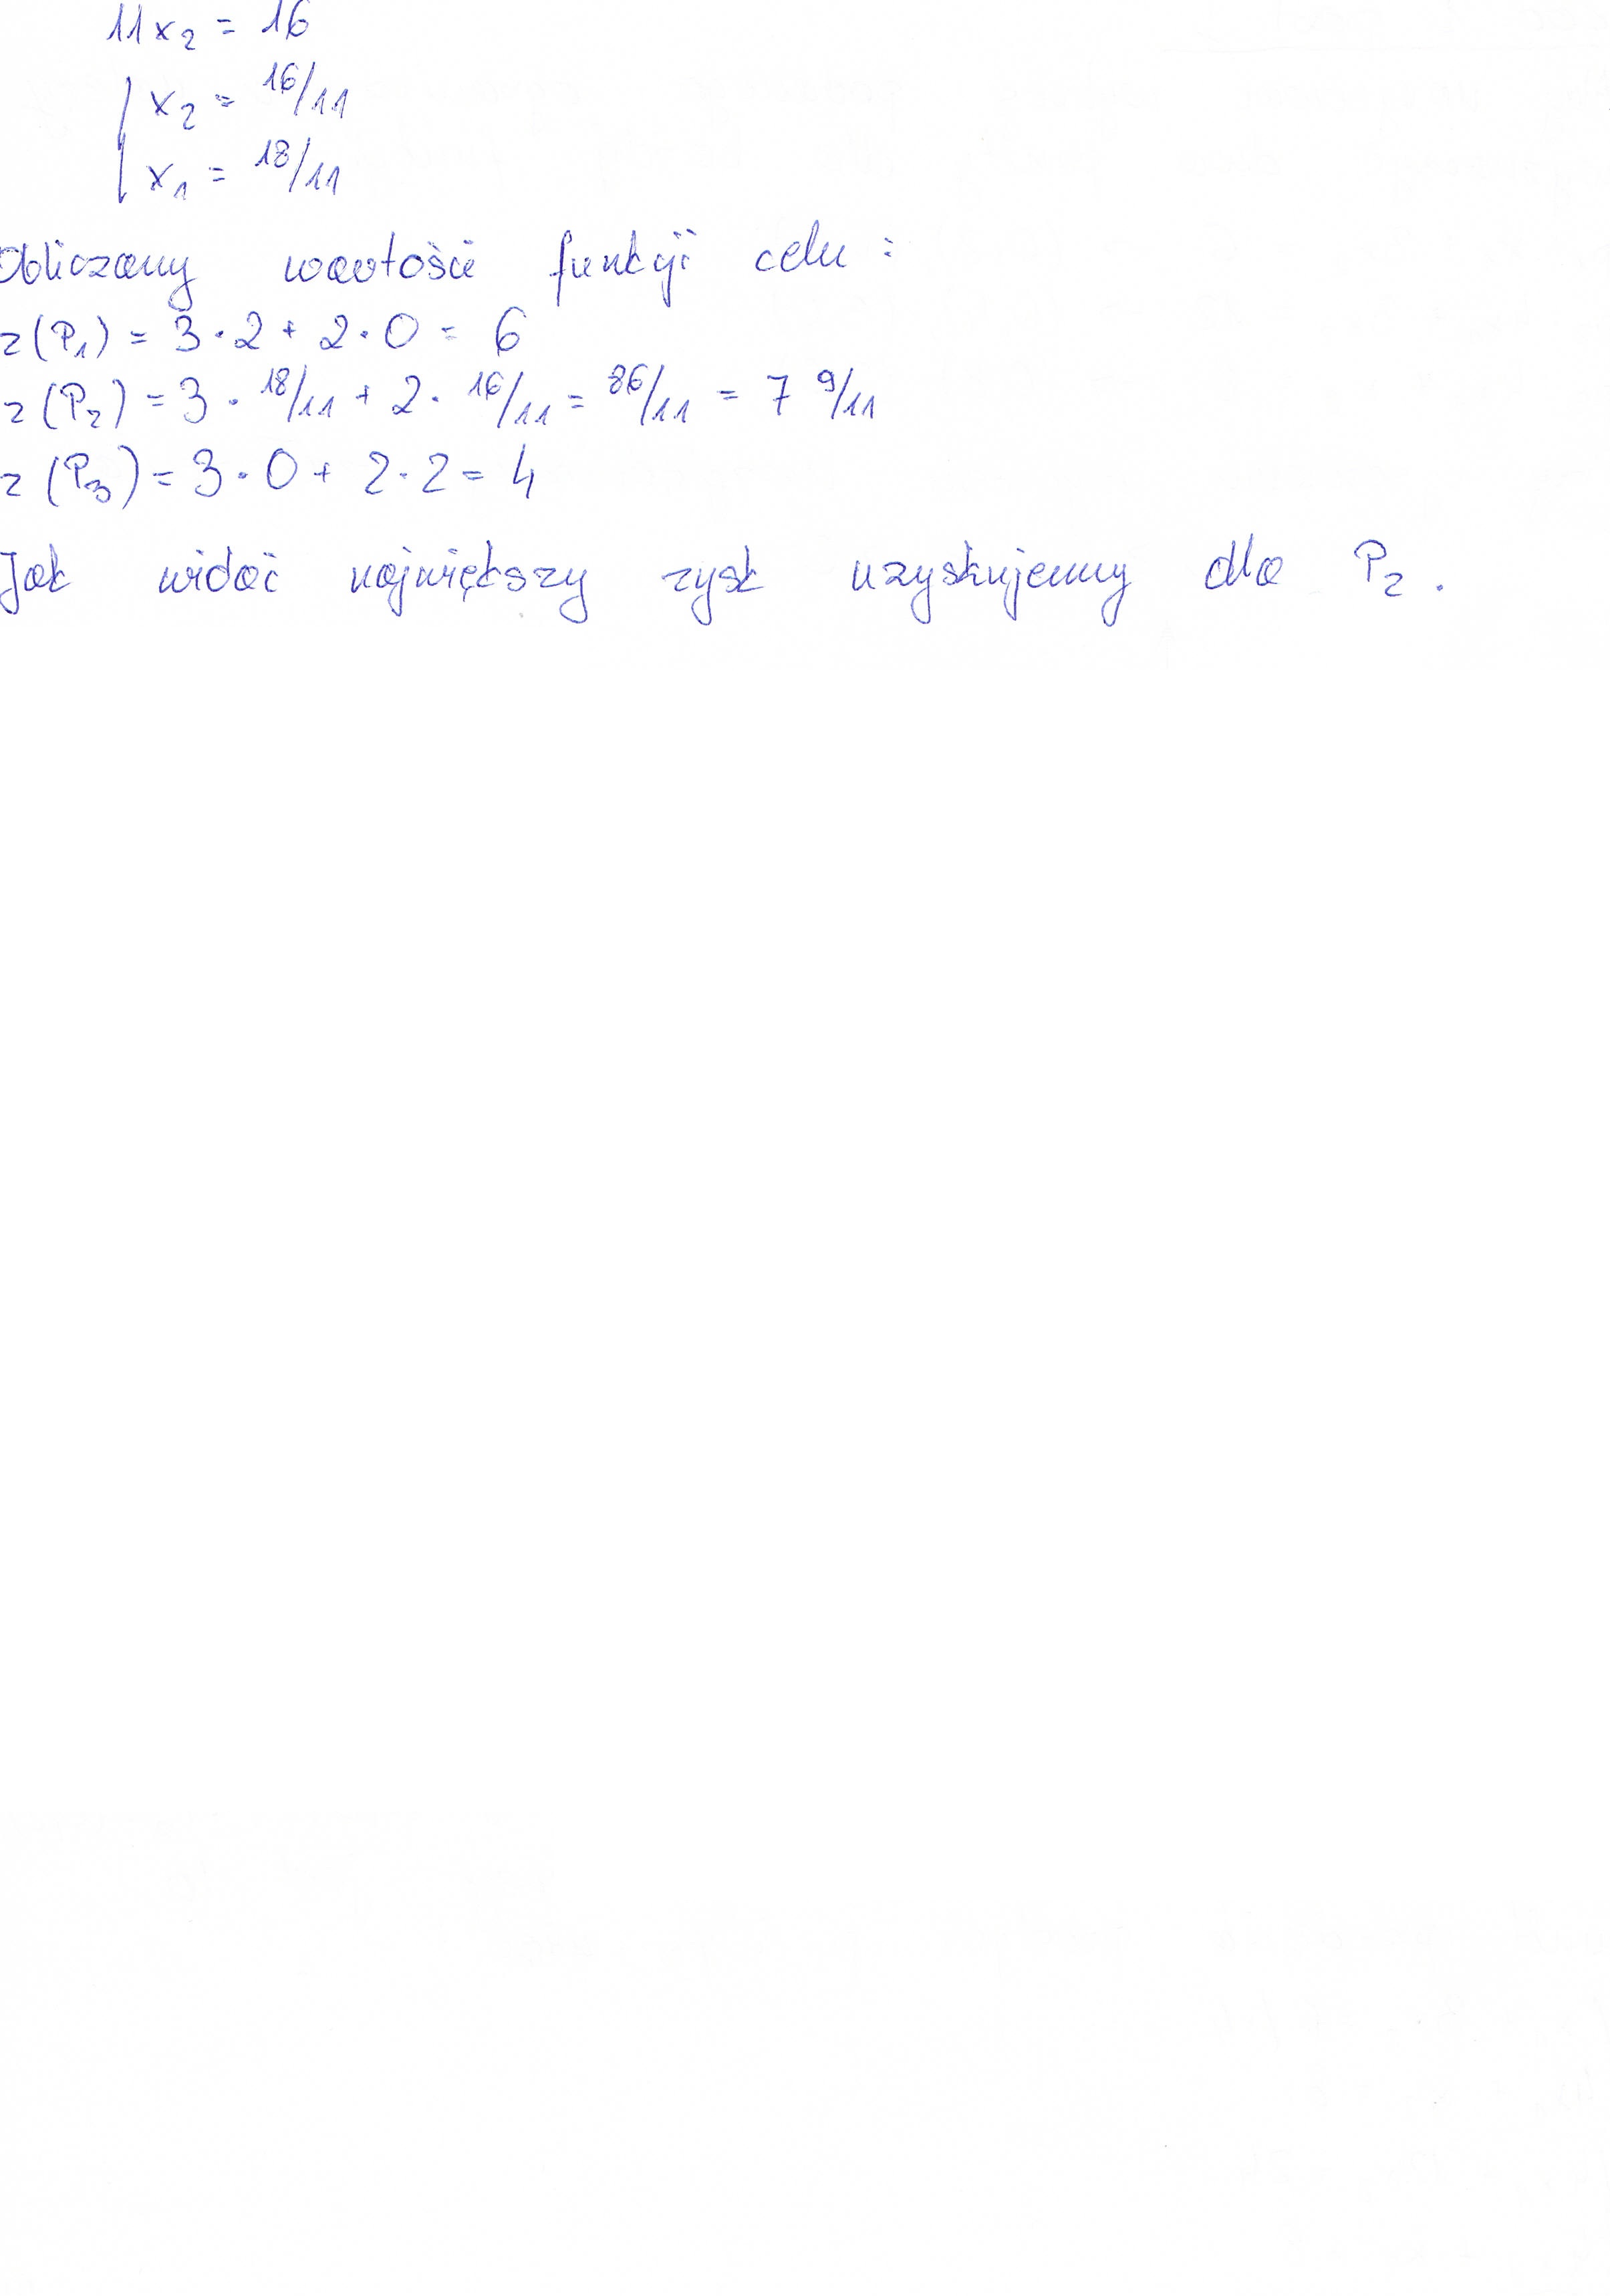 11x₂ = 16
x₂ = 16/11
x₁ = 18/11
Obliczamy wartości funkcji celu :
z(P₁) = 3·2 + 2·0 = 6
z(P₂) = 3 · 18/11 + 2 · 16/11 = 86/11 = 7 9/11
z(P₃) = 3·0 + 2·2 = 4
Jak widać największy zysk uzyskujemy dla P₂ .